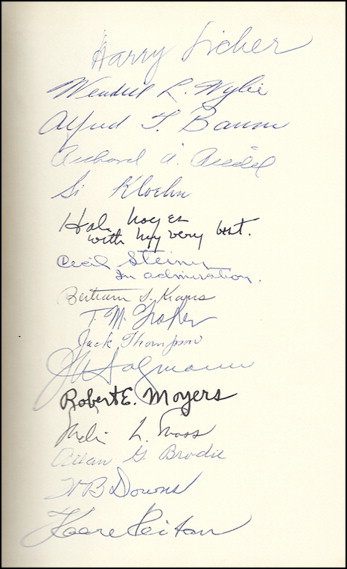 Harry Sicher
Wendell L. Wylie
Alfred T. Baum
Richard A. Riedel
Si Kloehn
Hal Noyes
with my very best.
Cecil Steiner
In admiration.
Bertram S. Kraus
T. M. Graber
Jack Thompson
J A Salzmann
Robert E. Moyers
L. Moss
Allan G. Brodie
W B Downs
Kaare Reitan